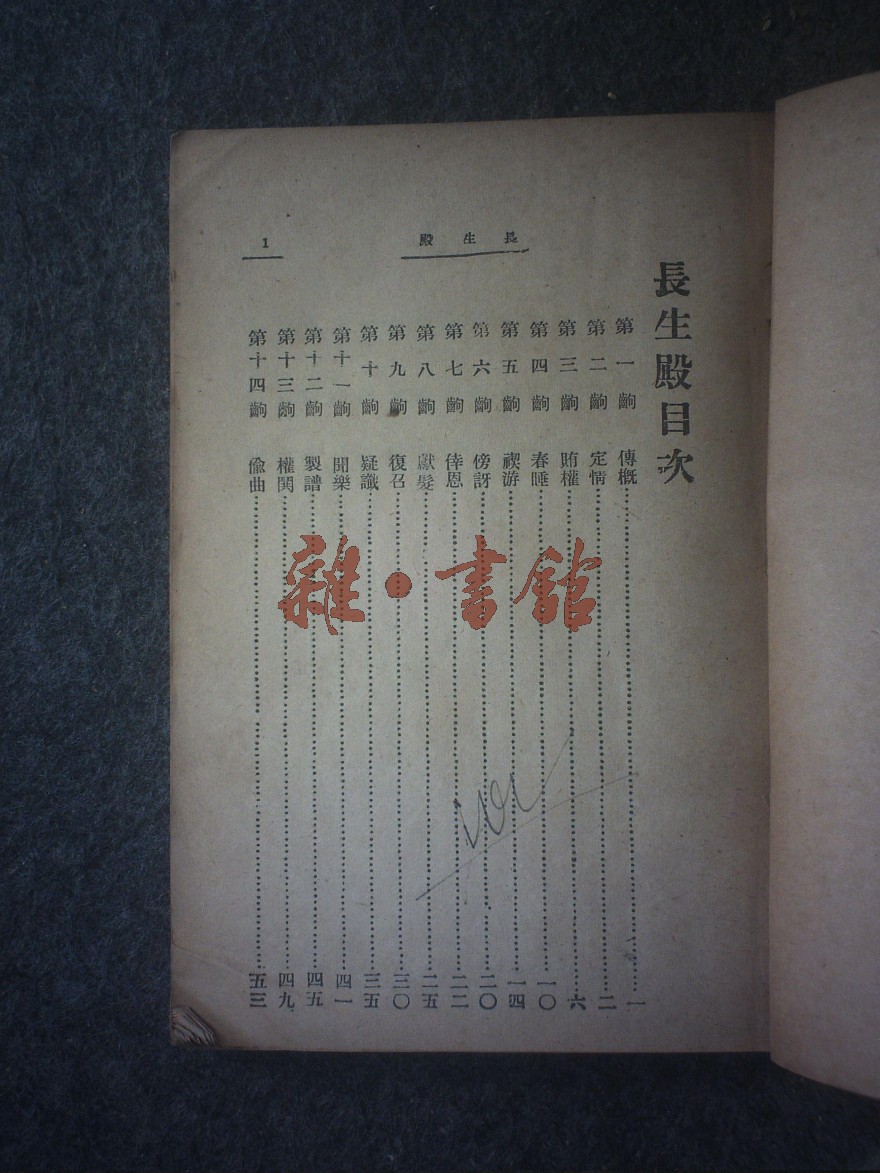 長生殿
1
長生殿目次
第一齣 傳概……一
第二齣 定情……二
第三齣 賄權……六
第四齣 春睡……一〇
第五齣 禊游……一四
第六齣 傍訝……二〇
第七齣 倖恩……二二
第八齣 獻髮……二五
第九齣 復召……三〇
第十齣 疑讖……三五
第十一齣 聞樂……四一
第十二齣 製譜……四五
第十三齣 權鬨……四九
第十四齣 偸曲……五三
雜·書館